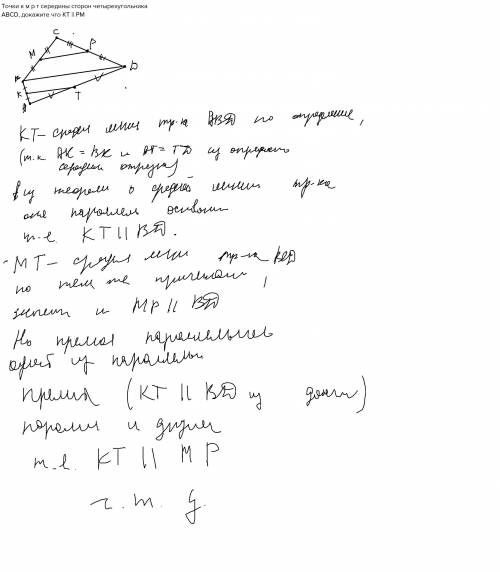 Точки к м р т середины сторон четырехугольника
ABCD, докажите что KT ॥ PM
C
M P
B D
K
A T
KT - средн линия тр-ка ABD по определению,
(т.к AK = BK и AT = TD из определ
середин отрезка)
из теоремы о средней линии тр-ка
она параллел основан
т.е. KT || BD.
- MT - средня лини тр-ка BCD
по тем же причинам,
значит и MP || BD
Но прямая параллельная
одной из параллельн
прямых (KT || BD из доказ)
паралл и другой
т.е. KT || MP
ч. т. д.